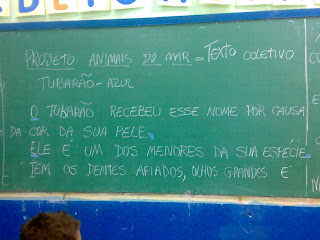 PROJETO ANIMAIS DO MAR = TEXTO COLETIVO
TUBARÃO-AZUL
O TUBARÃO RECEBEU ESSE NOME POR CAUSA
DA COR DA SUA PELE.
ELE É UM DOS MENORES DA SUA ESPÉCIE.
TEM OS DENTES AFIADOS, OLHOS GRANDES E